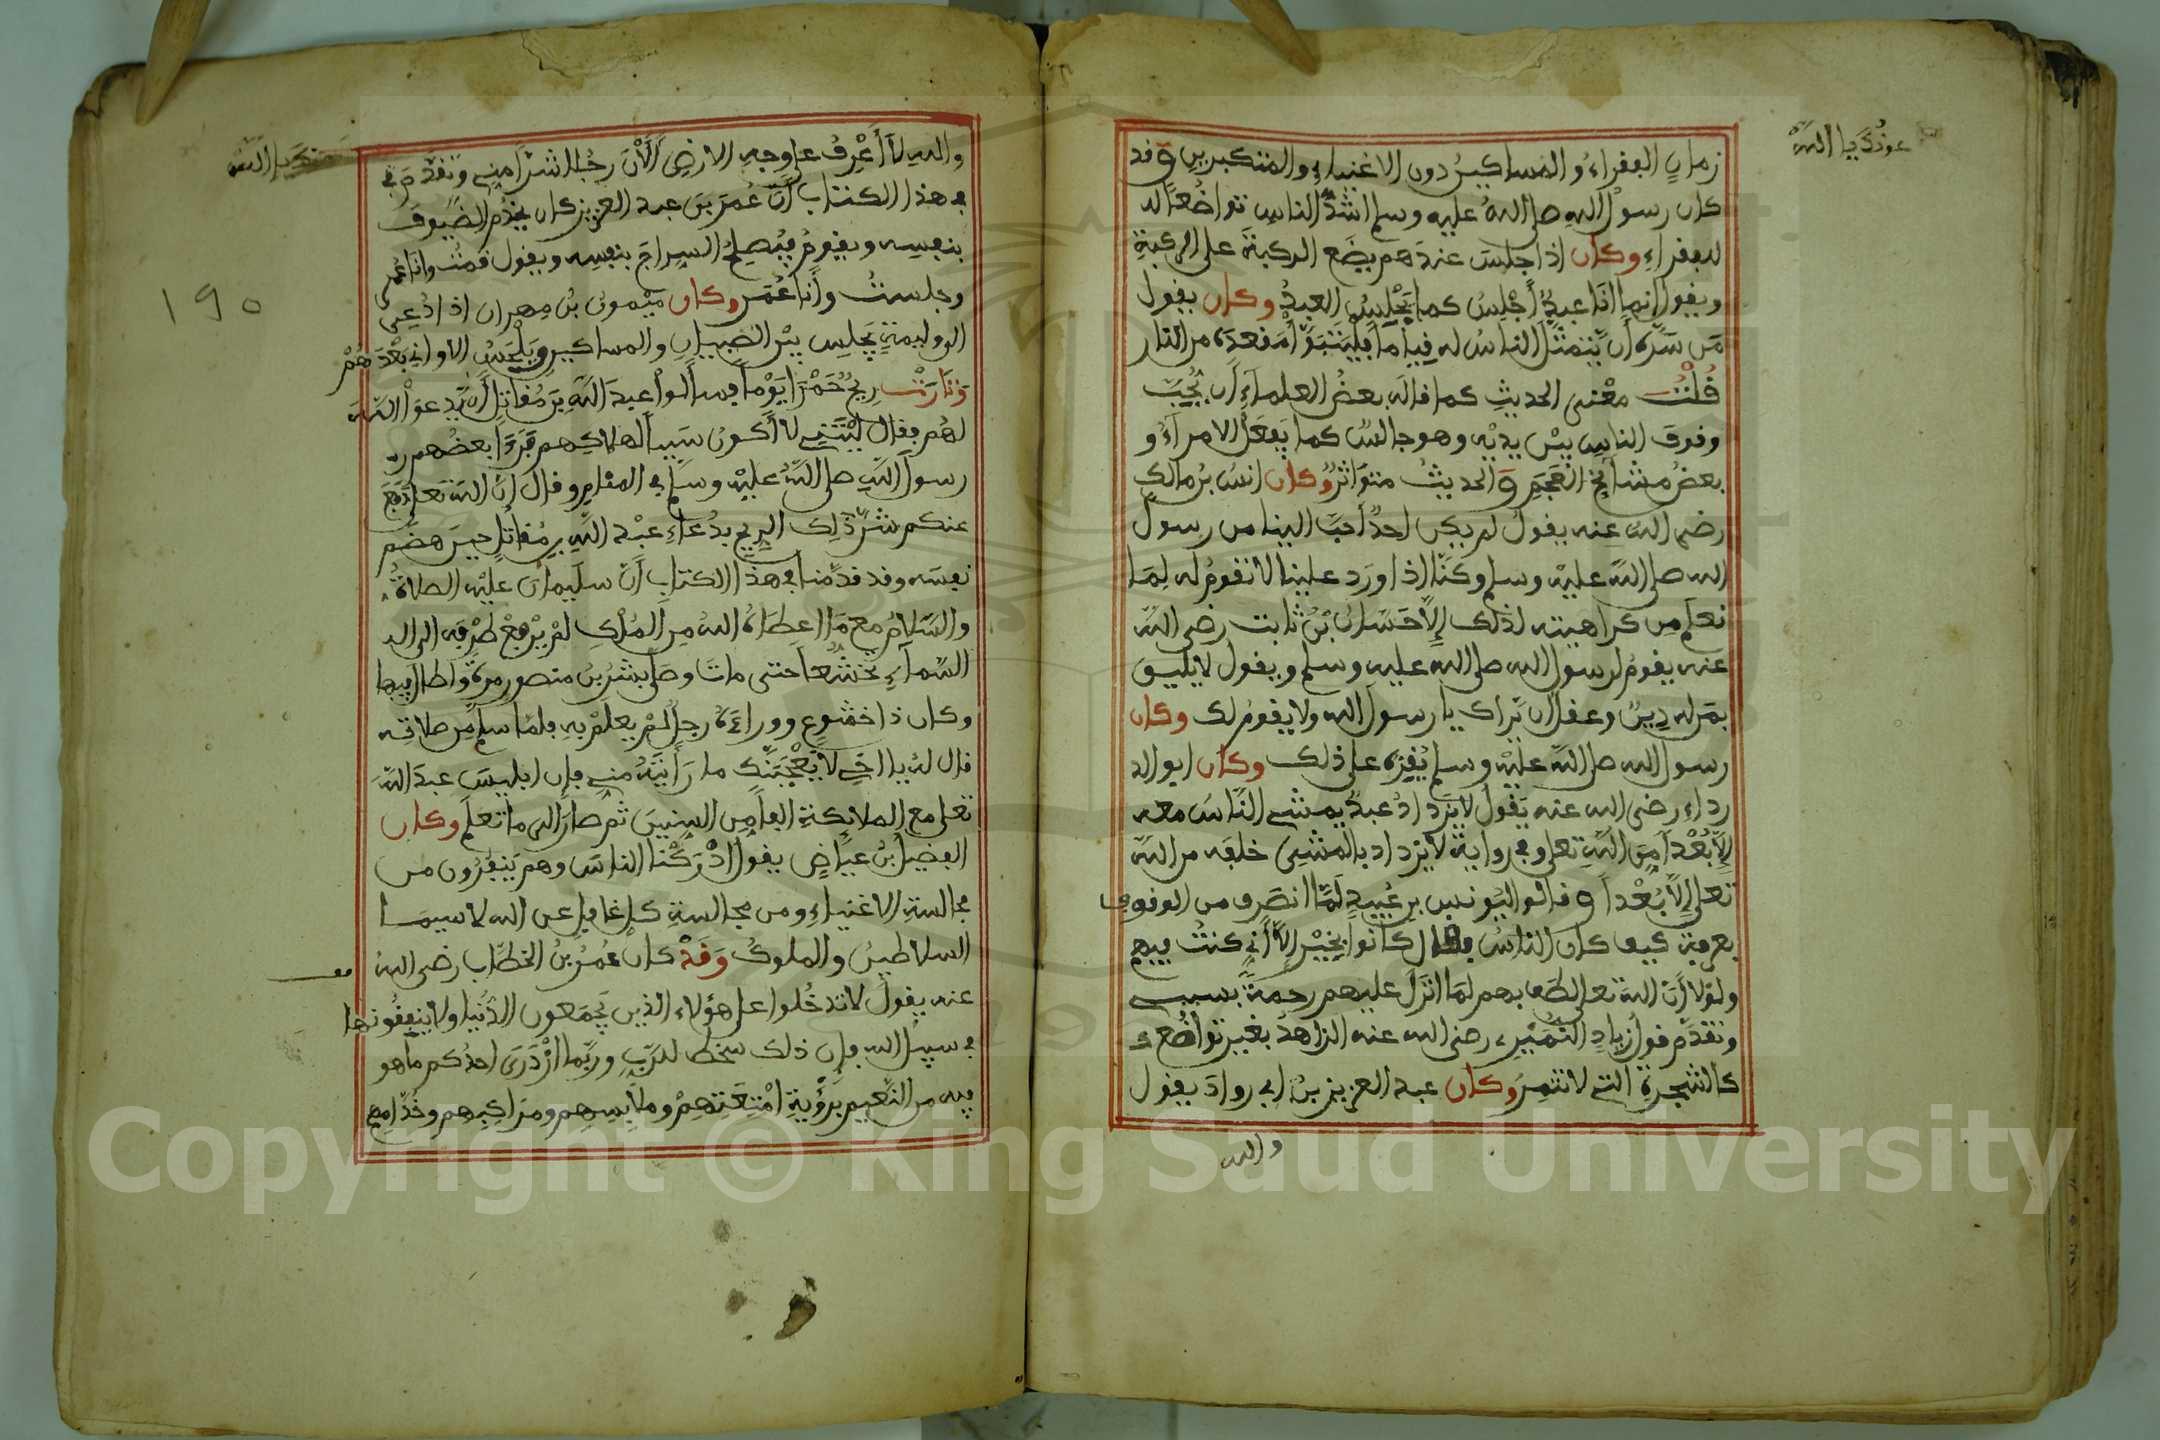 عونك يا الله
زمان الفقراء والمساكين دون الاغنياء والمتكبرين وقد
كان رسول الله صلى الله عليه وسلم اشد الناس تواضعا لله
للفقراء وكان اذا جلس عندهم يضع الركبة على الركبة
ويقول انما انا عبد أجلس كما يجلس العبد وكان يقول
من سره أن يتمثل الناس له قياما فليتبوأ مقعده من النار
قلت معنى الحديث كما قاله بعض العلماء أن يحب
وقوف الناس بين يديه وهو جالس كما يفعل الامراء و
بعض مشائخ العجم والحديث متواتر وكان انس بن مالك
رضي الله عنه يقول لم يكن احد أحب الينا من رسول
الله صلى الله عليه وسلم وكنا اذا ورد علينا لا نقوم له لما
نعلم من كراهيته لذلك إلا حسان بن ثابت رضي الله
عنه يقوم لرسول الله صلى الله عليه وسلم ويقول لا يليق
بمن له دين وعقل أن يراك يا رسول الله ولا يقوم لك وكان
رسول الله صلى الله عليه وسلم يقره على ذلك وكان ابو الد
رداء رضي الله عنه يقول لا يزداد عبد يمشي الناس معه
إلا بعدا من الله تعلى وفي رواية لا يزداد بالمشي خلفه من الله
تعلى إلا بعدا وقالوا ليونس بن عبيد لما انصرف من الوقوف
بعرفة كيف كان الناس فقال كانوا بخير إلا أني كنت فيهم
ولولا أن الله تعلى لطف بهم لما انزل عليهم رحمة بسببي
وتقدم قول زياد النميري رضي الله عنه الزاهد بغير تواضع
كالشجرة التي لا تثمر وكان عبد العزيز بن ابي رواد يقول
والله
والله لا أعرف على وجه الارض الأن رجلا شرا مني وتقدم في
في هذا الكتاب أن عمر بن عبد العزيز كان يخدم الضيوف
بنفسه ويقوم فيصلح السراج بنفسه ويقول قمت وانا عمر
وجلست وأنا عمر وكان ميمون بن مهران اذا دعي
الى وليمة يجلس بين الصبيان والمساكين ويلحس الاواني بعدهم
وثارت ريح حمرا يوما فسألوا عبد الله بن مقاتل أن يدعو الله
لهم فقال ليتني لا أكون سببا لهلاككم فرءا بعضهم
رسول الله صلى الله عليه وسلم في المنام وقال ان الله تعلى دفع
عنكم شر ذلك الريح بدعاء عبد الله بن مقاتل حين هضم
نفسه وقد قدمنا في هذا الكتاب أن سليمان عليه الصلاة
والسلام مع ما اعطاه الله من الملك لم يرفع طرفه الى
السماء تخشعا حتى مات وصلى بشر بن منصور مرة واطال فيها
وكان ذا خشوع ووراءه رجل لم يعلم به فلما سلم من صلاته
قال له يا اخي لا يعجبنك ما رأيته مني فإن ابليس عبد الله
تعلى مع الملائكة الفا من السنين ثم صار الى ما تعلم وكان
الفضيل بن عياض يقول ادركنا الناس وهم ينفرون من
مجالسة الاغنياء ومن مجالسة كل غافل عن الله لا سيما
السلاطين والملوك وقد كان عمر بن الخطاب رضي الله
عنه يقول لا تدخلوا على هؤلاء الذين يجمعون الدنيا ولا ينفقونها
في سبيل الله فإن ذلك سخط للرب وربما ازدرى احدكم ما هو
فيه من النعيم برؤية امتعتهم وملابسهم ومراكبهم وخدامهم
190
Copyright © King Saud University